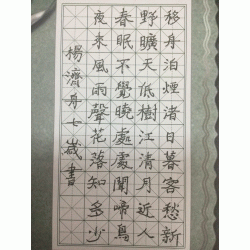 移舟泊煙渚日暮客愁新
野曠天低樹江清月近人
春眠不覺曉處處聞啼鳥
夜來風雨聲花落知多少
楊濟舟七歲書